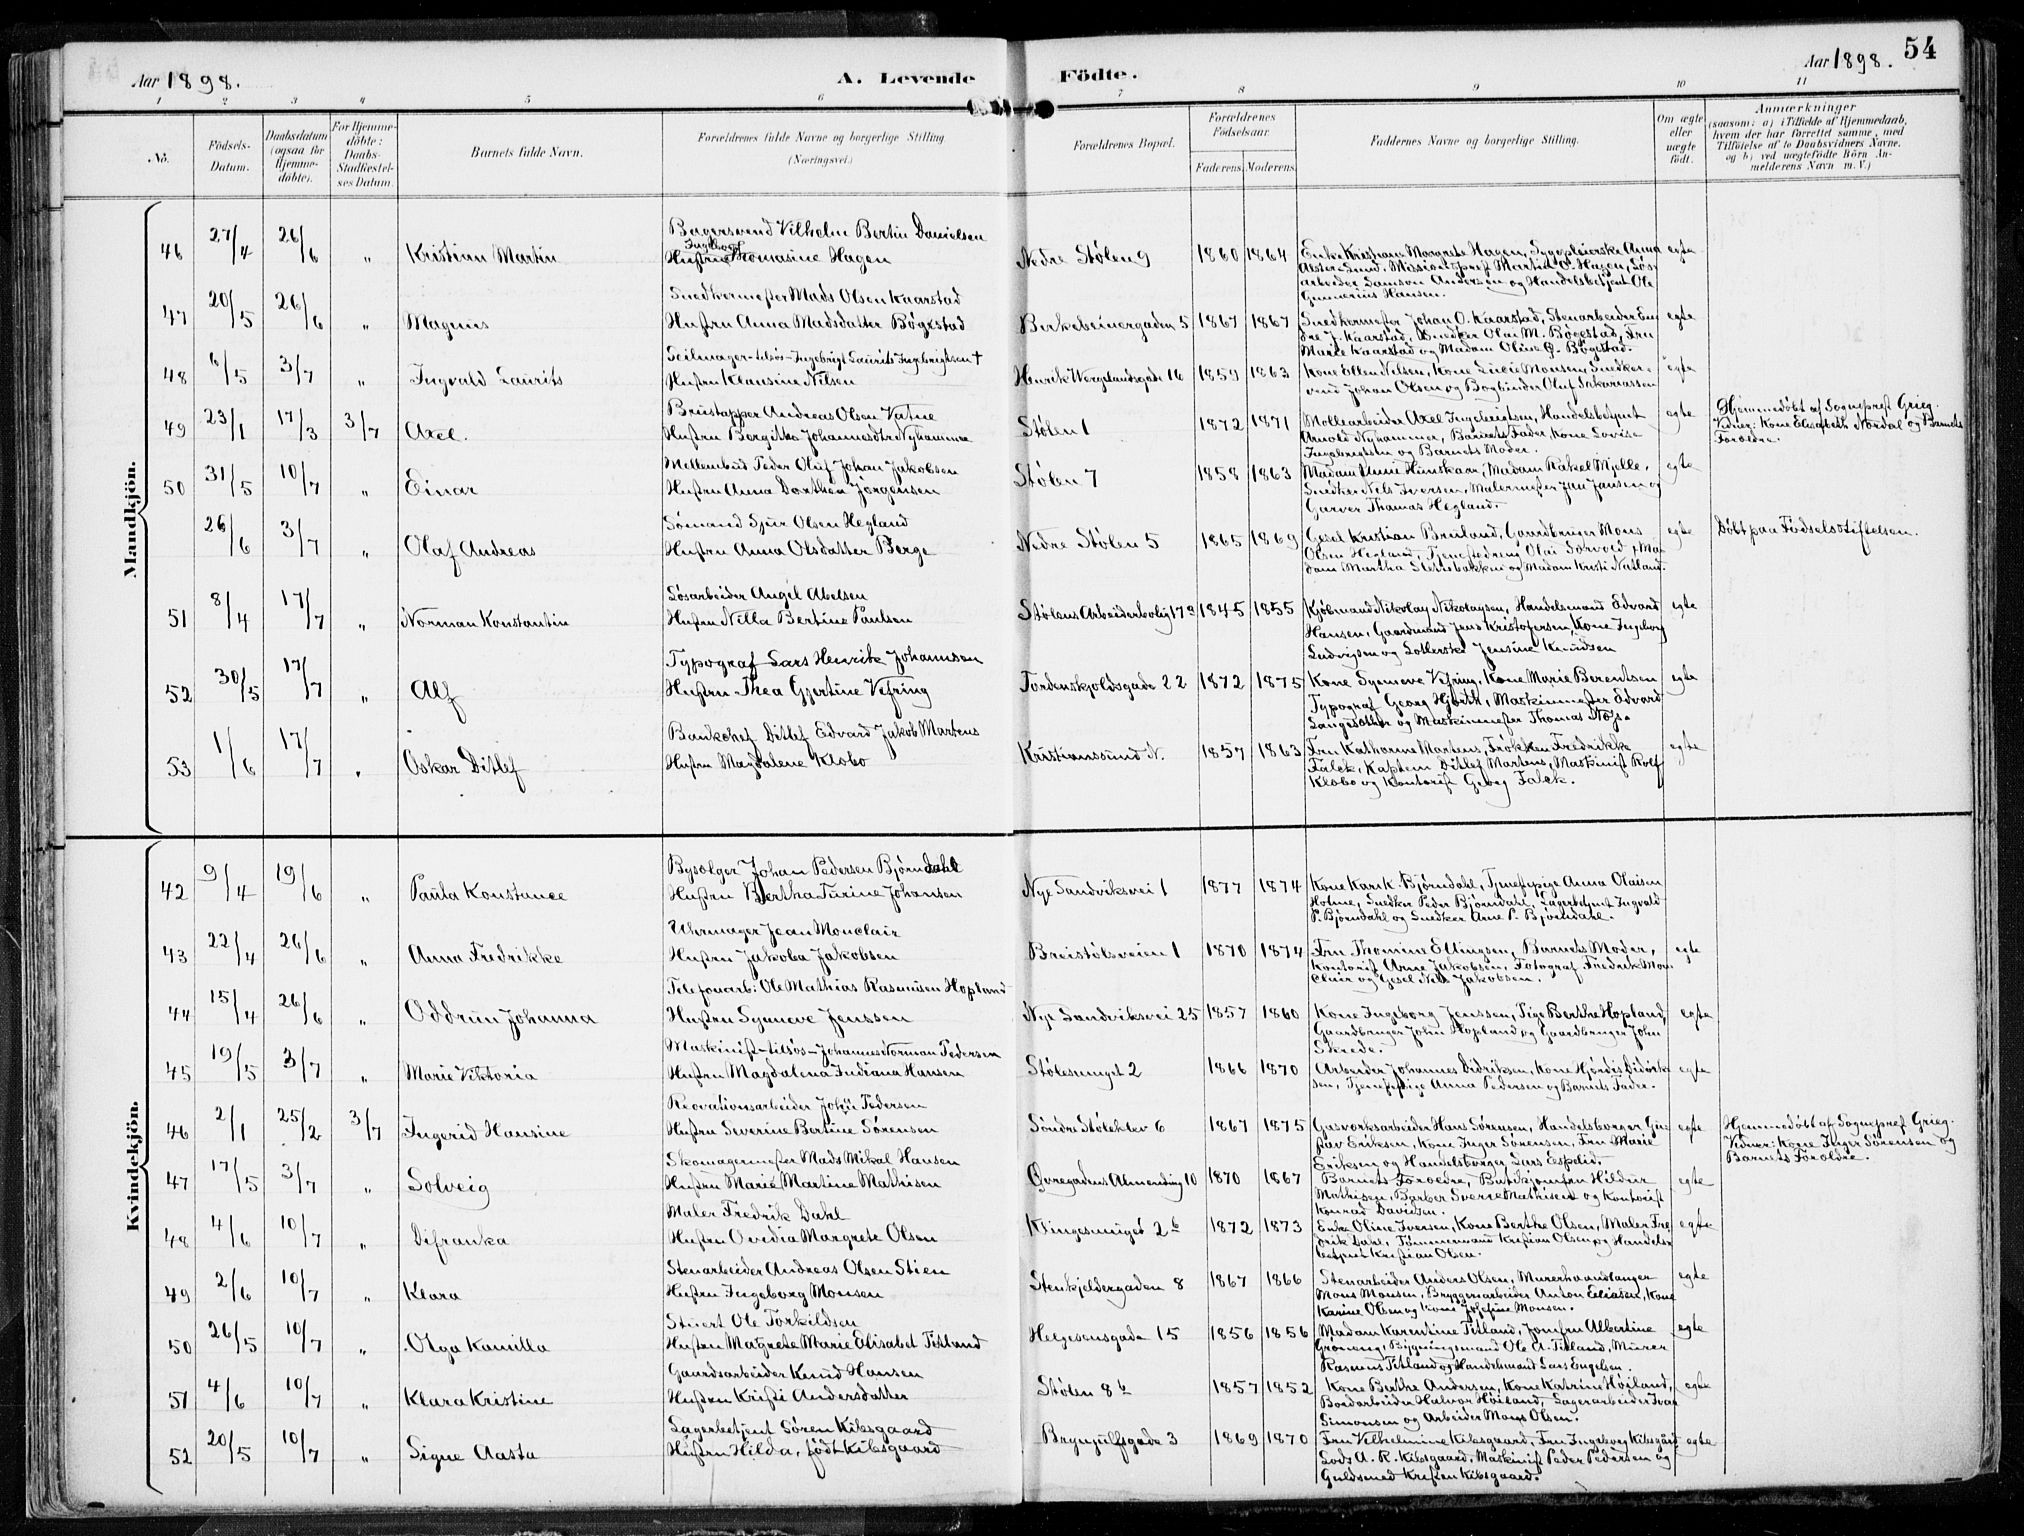 Aar 1898. A. Levende Födte. Aar 1898. 54
1 2 3 4 5 6 7 8 9 10 11
No. Födsels-Datum. Daabsdatum (ogsaa for Hjemmedöbte). For Hjemmedöbte: Daabs-Stadfæstelses Datum. Barnets fulde Navn. Forældrenes fulde Navne og borgerlige Stilling (Næringsvei.) Forældrenes Bopæl. Forældrenes Födselsaar. Faderens Moderens Faddernes Navne og borgerlige Stilling. Om ægte eller uægte födt. Anmærkninger (saasom: a) i Tilfælde af Hjemmedaab, hvem der har forrettet samme, med Tilföielse af to Daabsvidners Navne, og b) ved uægtefödte Börn Anmelderens Navn m. V.)
Mandkjön.
46 27/4 26/6 " Kristian Martin
Bagersvend Vilhelm Bertin Danielsen
Hustru Ingeborg Thomasine Hagen
Nedre Stølen 9 1860 1864
Enke Kristiane Margrete Hagen, Sygepleierske Anna
Alster Lund, Missionsprest Martin O. Hagen, Løs-
arbeider Samson Andersen og Handelsbetjent Ole
Gunnerius Hansen.
egte
47 20/5 26/6 " Magnus
Snedkermester Mads Olsen Kaarstad
Hustru Anna Madsdatter Bøgestad
Birkebeinergaden 5 1867 1867
Snedkermester Johan O. Kaarstad, Stenarbeider En-
dre J. Kaarstad, Snedker Olai M. Bøgestad, Fru
Marie Kaarstad og Madam Oline O. Bøgestad.
egte
48 6/5 3/7 " Ingvald Laurits
Seilmager - tilsøs - Ingebrigt Laurits Ingebrigtsen †
Hustru Klausine Nilsen
Henrik Wergelandsgade 16 1859 1863
Kone Ellen Nilsen, Kone Lucie Monsen, Snedker-
svend Johan Olsen og Bogbinder Oluf Sakariassen
egte
49 23/1 17/3 3/7 Axel.
Brustapper Andreas Olsen Vatne
Hustru Bergitha Johannesdtr Nyhammer
Stølen 1 1872 1871
Møllearbeider Axel Ingebrigtsen, Handelsbetjent
Arnold Nyhammer, Barnets Fader, Kone Lovise
Ingebrigtsen og Barnets Moder.
egte
Hjemmedøbt af Sogneprest Grieg.
Vidner: Kone Elisabeth Nordal og Barnets
Foroldre.
50 31/5 10/7 " Einar
Mellembud Peder Oluf Johan Jakobsen
Hustru Anna Dorthea Jørgensen
Stølen 7 1858 1863
Madam Anne Hunskaar, Madam Rakel Mjelle,
Snedker Nels Iversen, Malermester Jan Jansen og
Garver Thomas Hegland.
egte
26/6 3/7 " Olaf Andreas
Sømand Sjur Olsen Hegland
Hustru Anna Olsdatter Berge
Nedre Stølen 5 1865 1869
Gesel Kristian Breiland, Gaardbruger Mons
Olsen Hegland, Tjenestedreng Olai Sørvold, Ma-
dam Martha Stenebakken og Madam Kristi Natland.
egte
Døbt paa Fødselsstiftelsen.
51 8/4 17/7 " Norman Konstantin
Løsarbeider Angel Abelsen
Hustru Nilla Bertine Paulsen
Stølens Arbeiderbolig 17 1845 1855
Kjøbmand Nikolay Nikolaysen, Handelsmand Edvard
Hansen, Gaardmand Jens Kristofersen, Kone Ingeborg
Ludvigsen og Jensine Knudsen
egte
52 30/5 17/7 " Alf
Typograf Lars Henrik Johannsen
Hustru Thea Gjertine Vefring
Tordenskjoldsgade 22 1872 1875
Kone Synneve Vefring, Kone Marie Berentsen
Typograf Georg Hjorth, Maskinmester Edvard
Langesæther og Maskinmester Thomas
egte
53 1/6 17/7 " Oskar Ditlef
Bankchef Ditlef Edvard Jakob Martens
Hustru Magdalene Klobo
Kristianssund N. 1857 1863
Fru Kathorine Martens, Frøkken Fredrikke
Falck, Kaptein Ditlef Martens, Maskinist Rolf
Klobo og Kontorist Georg Falck.
egte
Kvindekjön.
42 9/4 19/6 " Paula Konstance
Bysælger Johan Pedersen Bjørndahl
Hustru Bertha Turine Johansen
Nye Sandviksvei 1 1877 1874
Kone Karik Bjørndahl, Tjenestepige Anna Olaisen
Holme, Snedker Peder Bjørndahl, Lagerbetjent Ingvald
P. Bjørndahl og Snedker Arne P. Bjørndahl.
43 22/4 26/6 " Anna Fredrikke
Uhrmager Jean Monclair
Hustru Jakoba Jakobsen
Breistølsveien 1 1870 1874
Fru Thomine Ellingsen, Barnets Moder,
Kontorist Arne Jakobsen, Fotograf Fredrik Mon-
clair og Gesel Nels Jakobsen.
egte
44 15/4 26/6 " Oddrun Johanna
Telefonarb: Ole Mathias Rasmusen Hopland
Hustru Synneve Jenssen
Nye Sandviksvei 25 1857 1860
Kone Ingeborg Jenssen, Pige Berthe Hopland,
Gaardbruger John Hopland og Gaardbruger John
Skrede.
egte
45 19/5 3/7 " Marie Viktoria
Maskinist - tilsøs - Johannes Norman Pedersen
Hustru Magdalena Indiana Hansen
Stølesmuget 2 1866 1870
Arbeider Johannes Didriksen, Kone Hjørdis Didrik-
sen, Tjenestepige Anna Pedersen og Barnets Fader.
egte
46 2/1 25/2 3/7 Ingerid Hansine
Reovationsarbeider John Pedersen
Hustru Severine Bertine Sørensen
Søndre Støleklev 6 1867 1875
Gasværksarbeider Hans Sørensen, Handelsborger Gus-
tav Eriksen, Kone Inger Sørensen, Fru Marie
Eriksen og Handelsborger Lars Espelid.
egte
Hjemmedøbt af Sogneprest Grieg.
Vidner: Kone Inger Sørensen og
Barnets Foroldre.
47 17/5 3/7 " Solveig
Skomagermester Mads Mikal Hansen
Hustru Marie Martine Mathisen
Øvregadens Almending 10 1870 1867
Barnets Foroldre, Butikjomfru Hildur
Mathisen, Barber Sverre Mathisen og Kontorist
Konrad Davidsen.
egte
48 4/6 10/7 " Difranka
Maler Fredrik Dahl
Hustru Ovidia Margrete Olsen
Klingesmuget 2b 1872 1873
Enke Oline Iversen, Kone Berthe Olsen, Maler Fre-
drik Dahl, Tømmermand Kristian Olsen og Handels-
betjent Kristian Olsen.
egte
49 2/6 10/7 " Klara
Stenarbeider Andreas Olsen Stien
Hustru Ingeborg Monsen
Stenkjeldergaden 8 1867 1866
Stenarbeider Anders Olsen, Murerhaandlanger
Mons Monsen, Bryggeriarbeider Anton Eliassen, Kone
Karine Olsen og Kone Josefine Monsen.
egte
50 26/5 10/7 " Olga Kamilla
Stuert Ole Torkildsen
Hustru Magrete Marie Elisabet Titland
Helgesensgade 15 1856 1856
Madam Karentine Titland, Jomfru Albertine
Grønneng, Bygningsmand Ole A. Titland, Murer
Rasmus Titland og Handelsmand Lars Engelsen.
egte
51 4/6 10/7 " Klara Kristine
Gaardsarbeider Knud Hansen
Hustru Kristi Andersdatter
Stølen 8b 1857 1852
Kone Berthe Andersen, Kone Katrine Høiland,
Bordarbeider Halvor Høiland, Lagerarbeider Ivar
Simonsen og Arbeider Mons Olsen.
egte
52 20/5 10/7 " Signe Aasta
Lagerbetjent Søren Kibsgaard
Hustru Hilda, født Kibsgaard
Brynjulfsgade 3 1869 1870
Fru Vilhelmine Kibsgaard, Fru Ingeborg Kibsgård
Lods A. R. Kibsgaard, Maskinist Peder Pedersen og
Guldsmed Kristen Kibsgaard.
egte